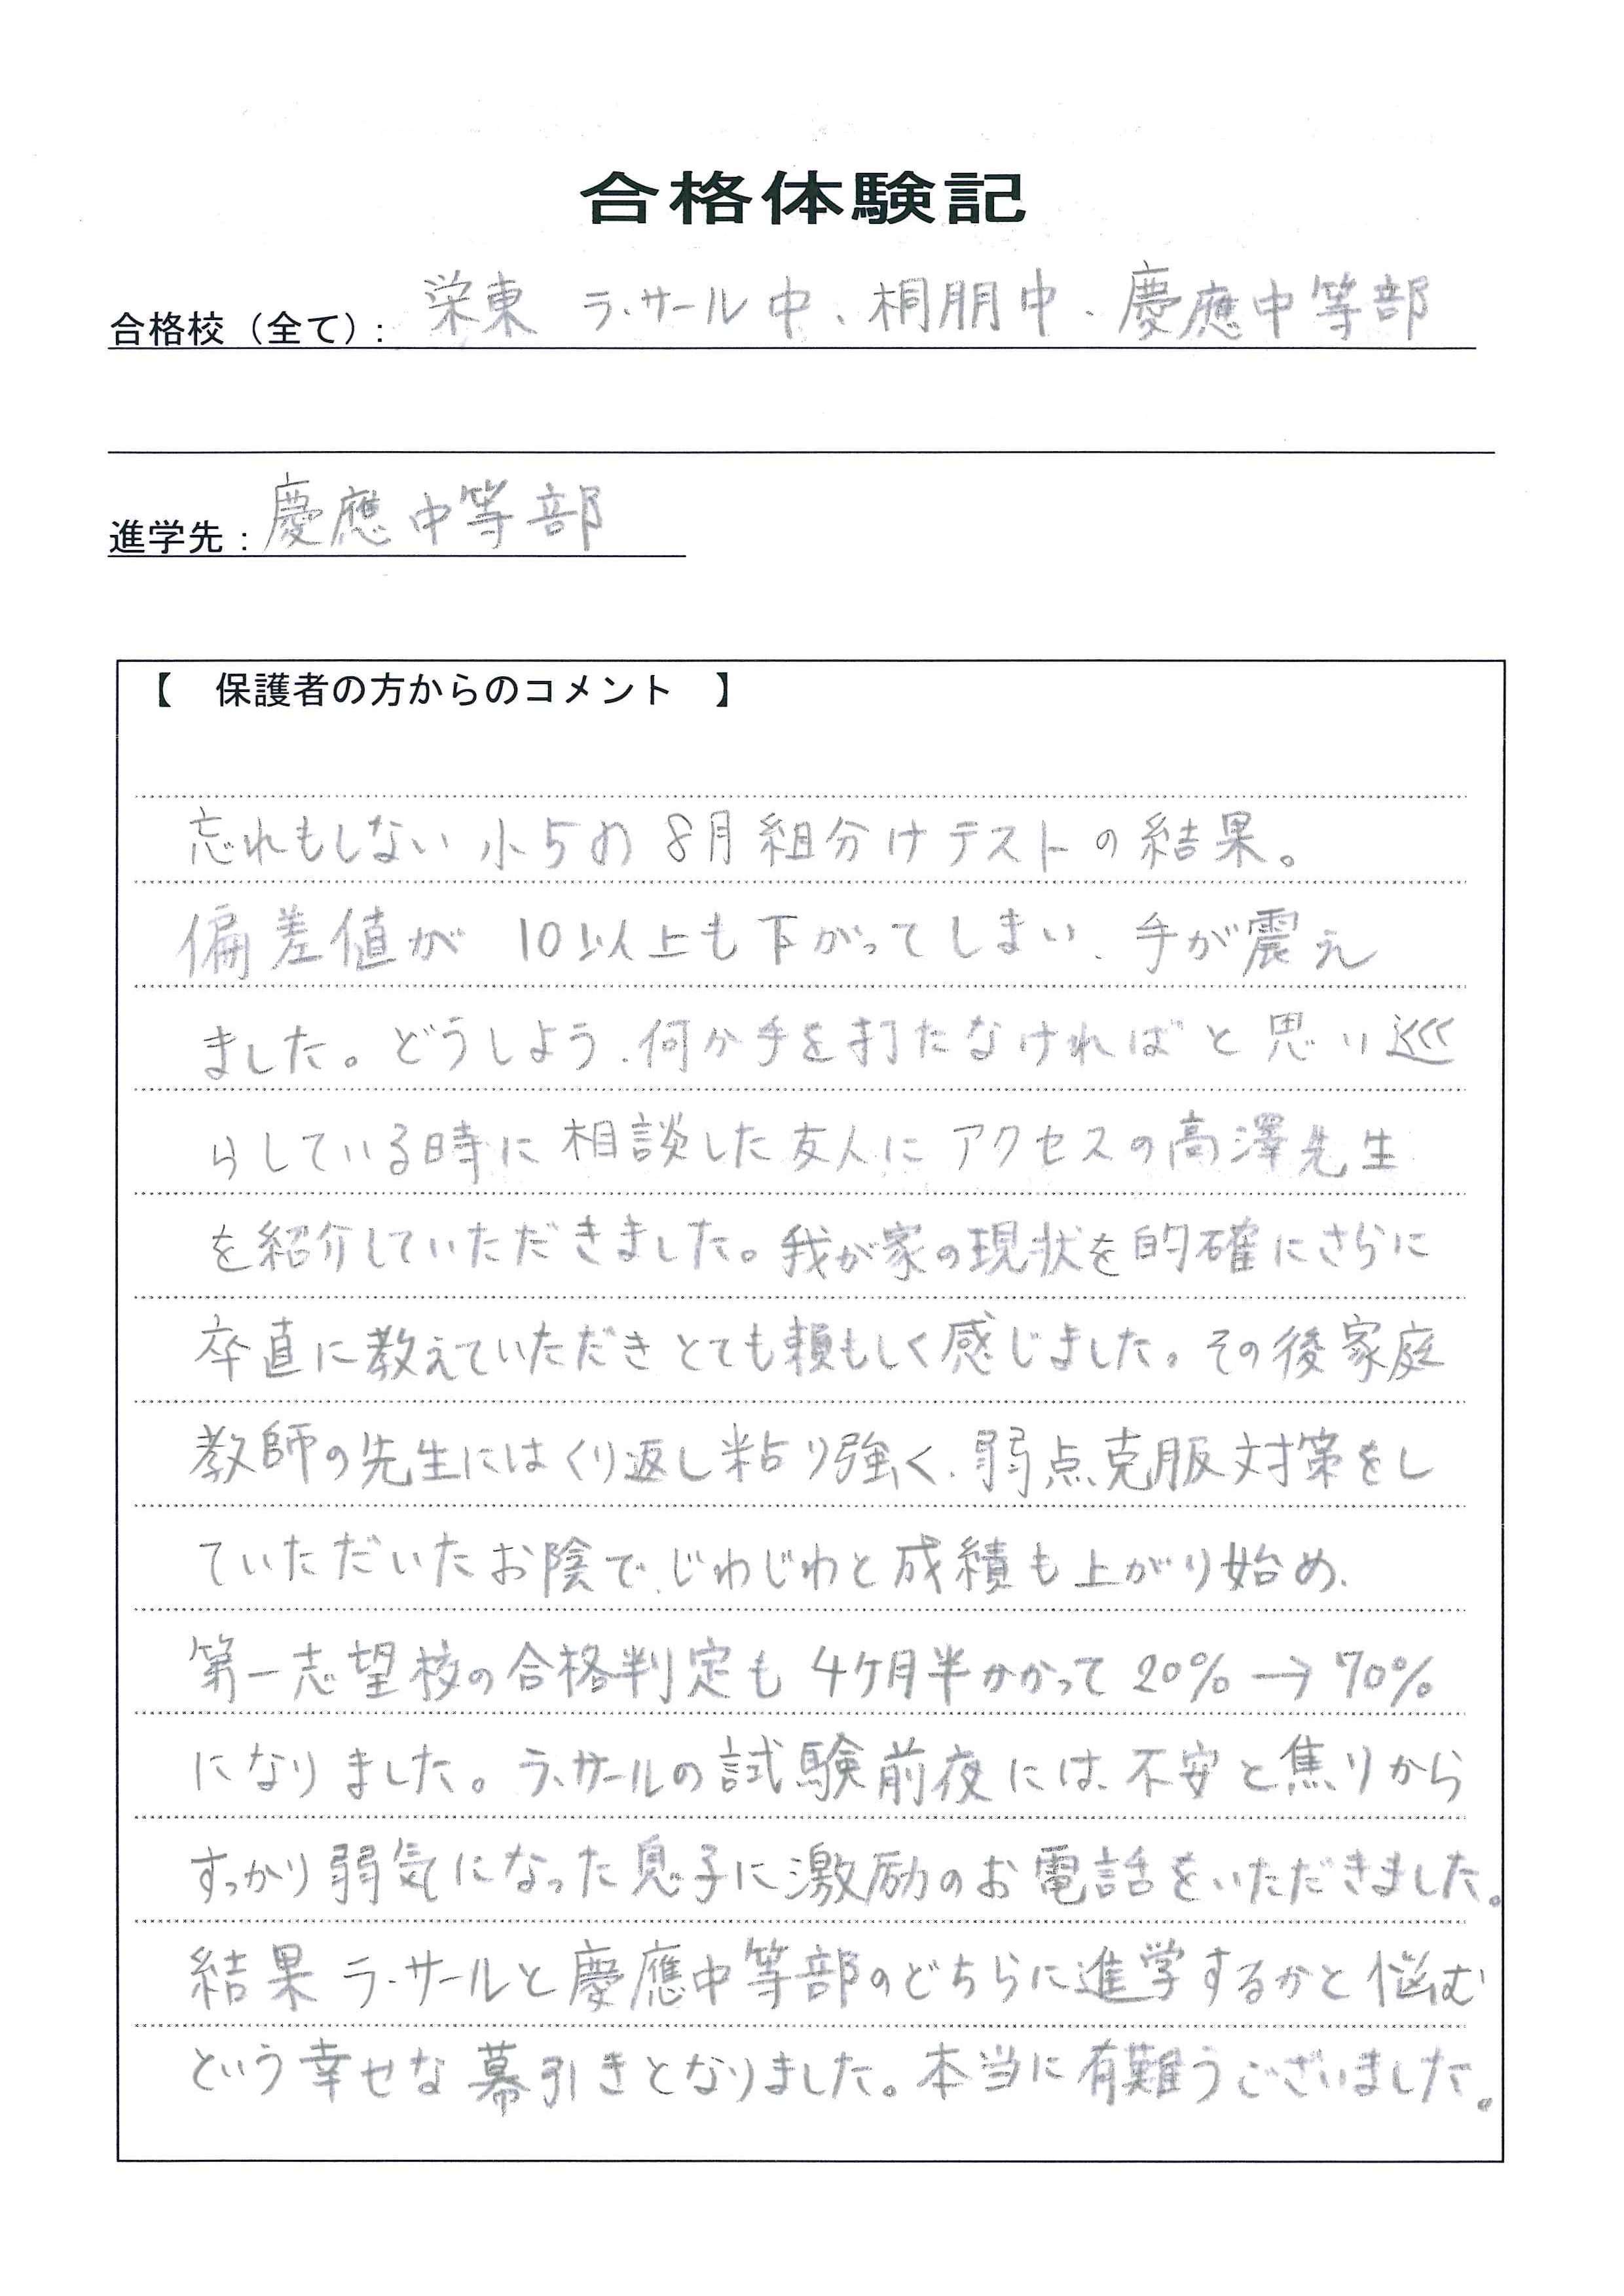 合格体験記
合格校（全て）: 栄東 ラ・サール中、桐朋中、慶應中等部
進学先: 慶應中等部
【　保護者の方からのコメント　】
忘れもしない小5の8月組分けテストの結果。
偏差値が10以上も下がってしまい、手が震え
ました。どうしよう、何か手を打たなければと思い巡
らしている時に相談した友人にアクセスの高澤先生
を紹介していただきました。我が家の現状を的確にさらに
卒直に教えていただきとても頼もしく感じました。その後家庭
教師の先生にはくり返し粘り強く、弱点克服対策をし
ていただいたお陰で、じわじわと成績も上がり始め、
第一志望校の合格判定も4ケ月半かかって20%→70%
になりました。ラ・サールの試験前夜には、不安と焦りから
すっかり弱気になった息子に激励のお電話をいただきました。
結果ラ・サールと慶應中等部のどちらに進学するかと悩む
という幸せな幕引きとなりました。本当に有難うございました。